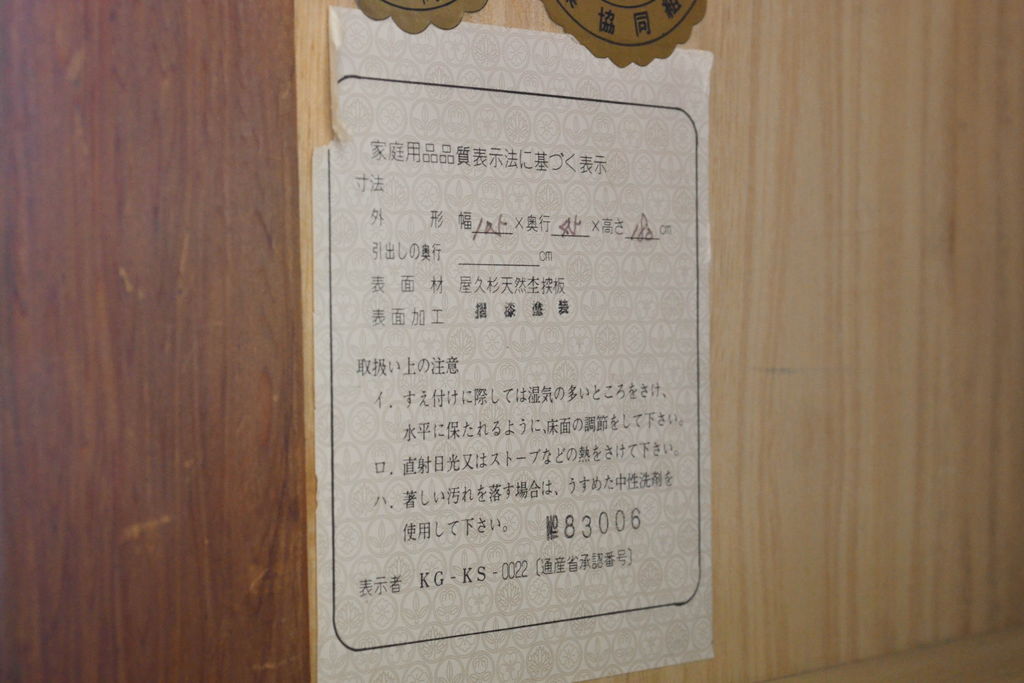 協同組
家庭用品品質表示法に基づく表示
寸法
外形 幅105×奥行45×高さ180cm
引出しの奥行 cm
表面材 屋久杉天然杢挨板
表面加工 摺漆塗装
取扱い上の注意
イ. すえ付けに際しては湿気の多いところをさけ、
水平に保たれるように、床面の調節をして下さい。
ロ. 直射日光又はストーブなどの熱をさけて下さい。
ハ. 著しい汚れを落す場合は、うすめた中性洗剤を
使用して下さい。 №83006
表示者 KG-KS-0022〔通産省承認番号〕